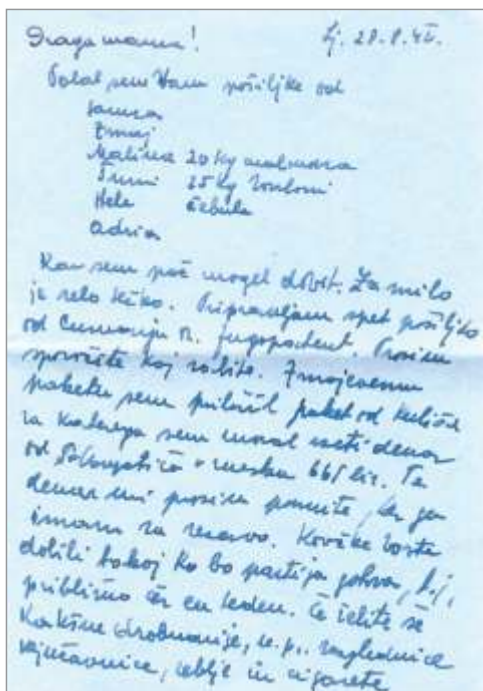 Draga mama! Lj. 28.8.42.
Poslal sem Vam pošiljke od
Samsa
Zmaj
Malina 20 kg marmorna
Šumi 25 kg bonboni
Hele čebula
Adria
Kar sem pač mogel dobit. Za milo
je zelo težko. Pripravljam spet pošiljko
od in Jugopatent. Prosim
sporočite kaj rabite. Zmajevemu
paketu sem priložil paket od
za katerega sem moral vzeti denar
od v znesku 665 lir. Ta
denar mi prosim pošljite, ker ga
imam za rezervo. Kovčke boste
dobili takoj ko bo partija gotova, t.j.
približno čez en teden. Če želite še
kakšne drobnarije, n.pr. razglednice
vžigalnice, in cigarete